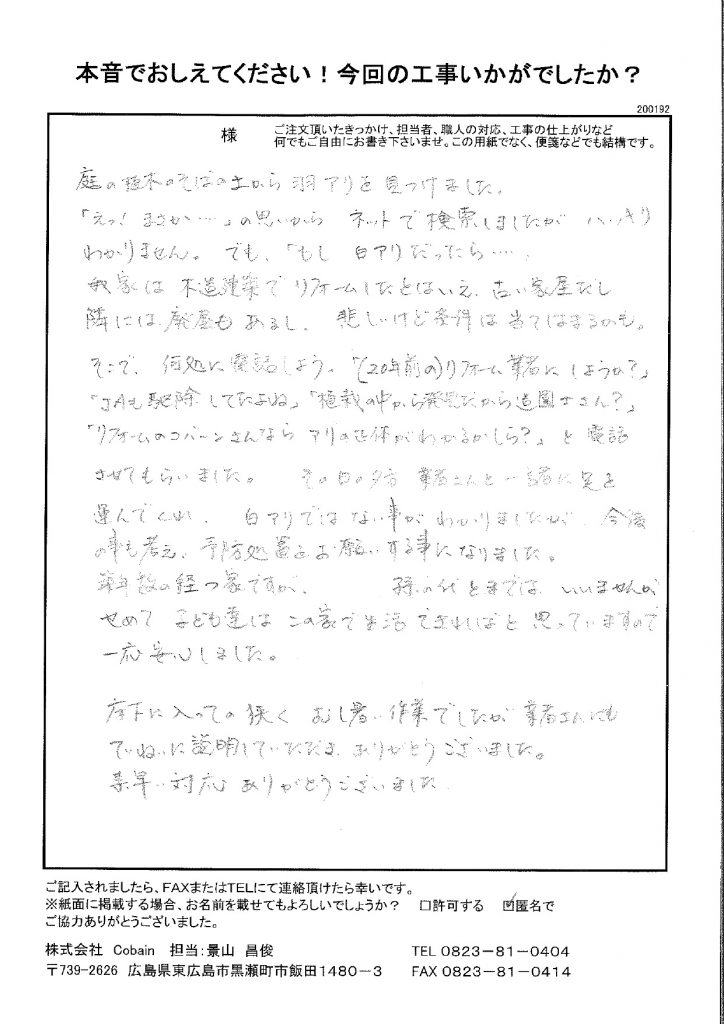 本音でおしえてください！今回の工事いかがでしたか？
200192
様
ご注文頂いたきっかけ、担当者、職人の対応、工事の仕上がりなど
何でもご自由にお書き下さいませ。この用紙でなく、便箋などでも結構です。
庭の植木のそばの土から羽アリを見つけました。
「えっ！まさか…」の思いから ネットで検索しましたが ハッキリ
わかりません。でも、「もし 白アリだったら…、
我家は木造建築でリフォームしたとはいえ、古い家屋だし
隣には廃屋もあるし、悲しいけど条件は当てはまるかも。
そこで、何処に電話しよう。「(20年前の)リフォーム業者にしようか？」
「JAも駆除してたよね」「植栽の中から発見だから造園士さん？」
「リフォームのコバーンさんなら アリの正体がわかるかしら？」と電話
させてもらいました。 その日の夕方 業者さんと一緒に足を
運んでくれ、白アリではない事がわかりましたが、今後
の事も考え、予防処置をお願いする事になりました。
築年数の経つ家ですが、 孫の代とまでは いいませんが
せめて 子ども達は この家で生活できればと思っていますので
一応安心しました。
床下に入っての狭く むし暑い作業でしたが 業者さんにも
ていねいに説明していただき ありがとうございました。
素早い対応ありがとうございました
ご記入されましたら、FAXまたはTELにて連絡頂けたら幸いです。
※紙面に掲載する場合、お名前を載せてもよろしいでしょうか？ □許可する ☑匿名で
ご協力ありがとうございました。
株式会社 Cobain 担当：景山 昌俊 TEL 0823－81－0404
〒739－2626 広島県東広島市黒瀬町市飯田1480－3 FAX 0823－81－0414